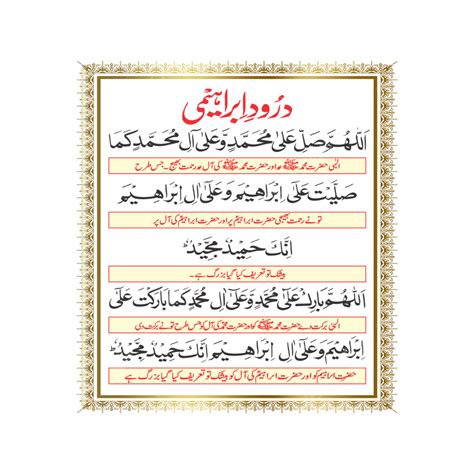 درودِ ابراہیمی
اَللّٰهُمَّ صَلِّ عَلٰی مُحَمَّدٍ وَّ عَلٰٓی اٰلِ مُحَمَّدٍ کَمَا
الٰہی حضرت محمد ﷺ اور حضرت محمد ﷺ کی آل پر رحمت بھیج۔ جس طرح
صَلَّیْتَ عَلٰٓی اِبْرَاهِیْمَ وَ عَلٰٓی اٰلِ اِبْرَاهِیْمَ
تو نے رحمت بھیجی حضرت ابراہیمؑ پر اور حضرت ابراہیمؑ کی آل پر
اِنَّکَ حَمِیْدٌ مَّجِیْدٌ ؕ
بیشک تو تعریف کیا گیا بزرگ ہے۔
اَللّٰهُمَّ بَارِکْ عَلٰی مُحَمَّدٍ وَّ عَلٰٓی اٰلِ مُحَمَّدٍ کَمَا بَارَکْتَ عَلٰٓی
الٰہی برکت دے حضرت محمد ﷺ کو اور حضرت محمد کی آل کو جس طرح تو نے برکت دی
اِبْرَاهِیْمَ وَ عَلٰٓی اٰلِ اِبْرَاهِیْمَ اِنَّکَ حَمِیْدٌ مَّجِیْدٌ ؕ
حضرت ابراہیم کو اور حضرت ابراہیمؑ کی آل کو بیشک تو تعریف کیا گیا بزرگ ہے